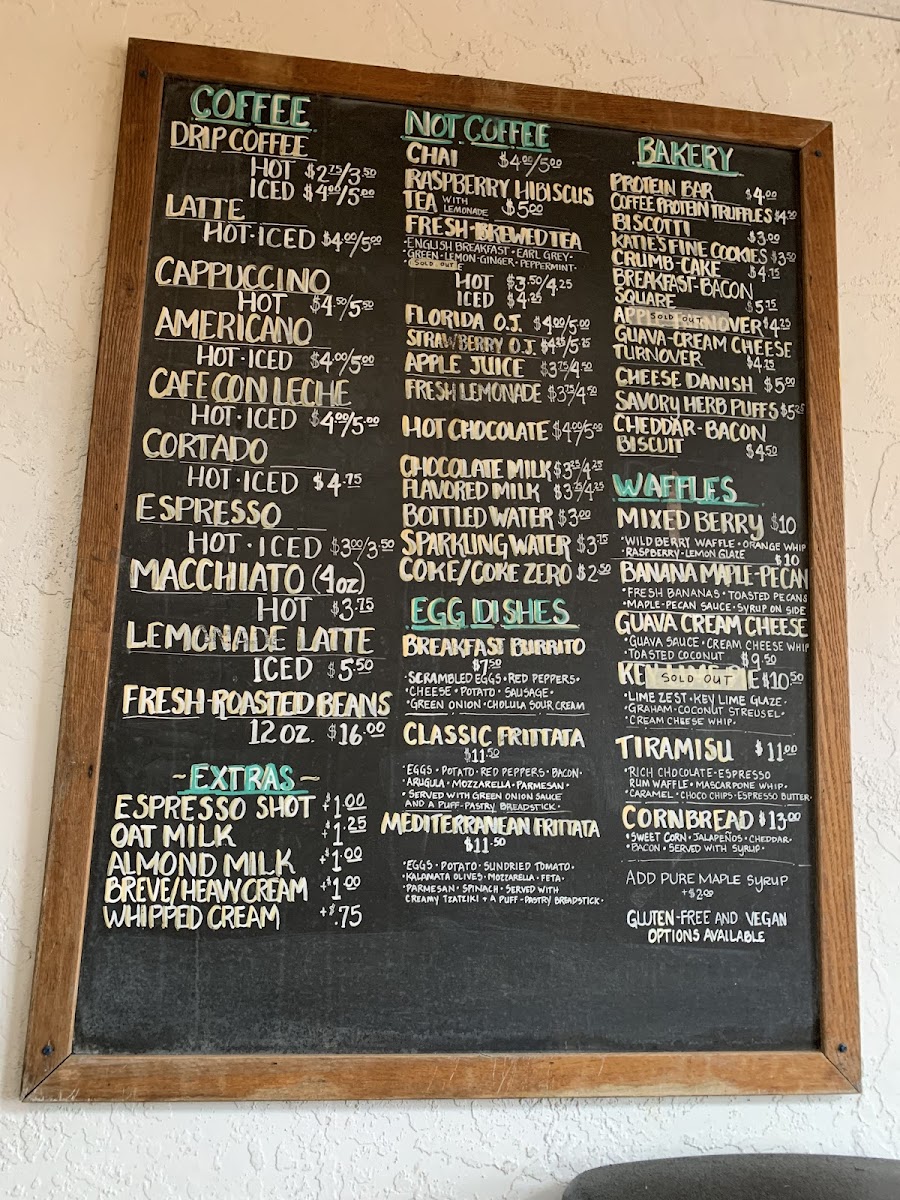 COFFEE
DRIP COFFEE
HOT $2.75/3.50
ICED $4.00/5.00
LATTE
HOT·ICED $4.00/5.00
CAPPUCCINO
HOT $4.50/5.50
AMERICANO
HOT·ICED $4.00/5.00
CAFE CON LECHE
HOT·ICED $4.00/5.00
CORTADO
HOT·ICED $4.75
ESPRESSO
HOT·ICED $3.00/3.50
MACCHIATO (4oz)
HOT $3.75
LEMONADE LATTE
ICED $5.50
FRESH-ROASTED BEANS
12 OZ. $16.00
~EXTRAS~
ESPRESSO SHOT +$1.00
OAT MILK +$1.25
ALMOND MILK +$1.00
BREVE/HEAVY CREAM +$1.00
WHIPPED CREAM +$.75
NOT COFFEE
CHAI $4.00/5.00
RASPBERRY HIBISCUS
TEA WITH LEMONADE $5.00
FRESH-BREWED TEA
·ENGLISH BREAKFAST·EARL GREY·
·GREEN·LEMON-GINGER·PEPPERMINT·
SOLD OUT
HOT $3.50/4.25
ICED $4.25
FLORIDA O.J. $4.00/5.00
STRAWBERRY O.J. $4.25/5.25
APPLE JUICE $3.75/4.50
FRESH LEMONADE $3.75/4.50
HOT CHOCOLATE $4.00/5.00
CHOCOLATE MILK $3.25/4.25
FLAVORED MILK $3.25/4.25
BOTTLED WATER $3.00
SPARKLING WATER $3.75
COKE/COKE ZERO $2.50
EGG DISHES
BREAKFAST BURRITO
$7.50
·SCRAMBLED EGGS·RED PEPPERS·
·CHEESE·POTATO·SAUSAGE·
·GREEN ONION·CHOLULA SOUR CREAM
CLASSIC FRITTATA
$11.50
·EGGS·POTATO·RED PEPPERS·BACON·
·ARUGULA·MOZZARELLA·PARMESAN·
·SERVED WITH GREEN ONION SAUCE
AND A PUFF-PASTRY BREADSTICK·
MEDITERRANEAN FRITTATA
$11.50
·EGGS·POTATO·SUNDRIED TOMATO·
·KALAMATA OLIVES·MOZZARELLA·FETA·
·PARMESAN·SPINACH·SERVED WITH
CREAMY TZATZIKI + A PUFF-PASTRY BREADSTICK·
BAKERY
PROTEIN BAR $4.00
COFFEE PROTEIN TRUFFLES $4.50
BISCOTTI $3.00
KATIE'S FINE COOKIES $3.50
CRUMB-CAKE $4.75
BREAKFAST-BACON
SQUARE $5.75
SOLD OUT $4.25
GUAVA-CREAM CHEESE
TURNOVER $4.75
CHEESE DANISH $5.00
SAVORY HERB PUFFS $5.25
CHEDDAR-BACON
BISCUIT $4.50
WAFFLES
MIXED BERRY $10
·WILD BERRY WAFFLE·ORANGE WHIP
·RASPBERRY-LEMON GLAZE
$10
BANANA MAPLE-PECAN
·FRESH BANANAS·TOASTED PECANS
·MAPLE-PECAN SAUCE·SYRUP ON SIDE
GUAVA CREAM CHEESE
·GUAVA SAUCE·CREAM CHEESE WHIP
·TOASTED COCONUT $9.50
SOLD OUT $10.50
·LIME ZEST·KEY LIME GLAZE·
·GRAHAM-COCONUT STREUSEL·
·CREAM CHEESE WHIP·
TIRAMISU $11.00
·RICH CHOCOLATE-ESPRESSO
RUM WAFFLE·MASCARPONE WHIP·
·CARAMEL·CHOCO CHIPS·ESPRESSO BUTTER·
CORNBREAD $13.00
·SWEET CORN·JALAPEÑOS·CHEDDAR·
·BACON·SERVED WITH SYRUP·
ADD PURE MAPLE SYRUP
+$2.00
GLUTEN-FREE AND VEGAN
OPTIONS AVAILABLE